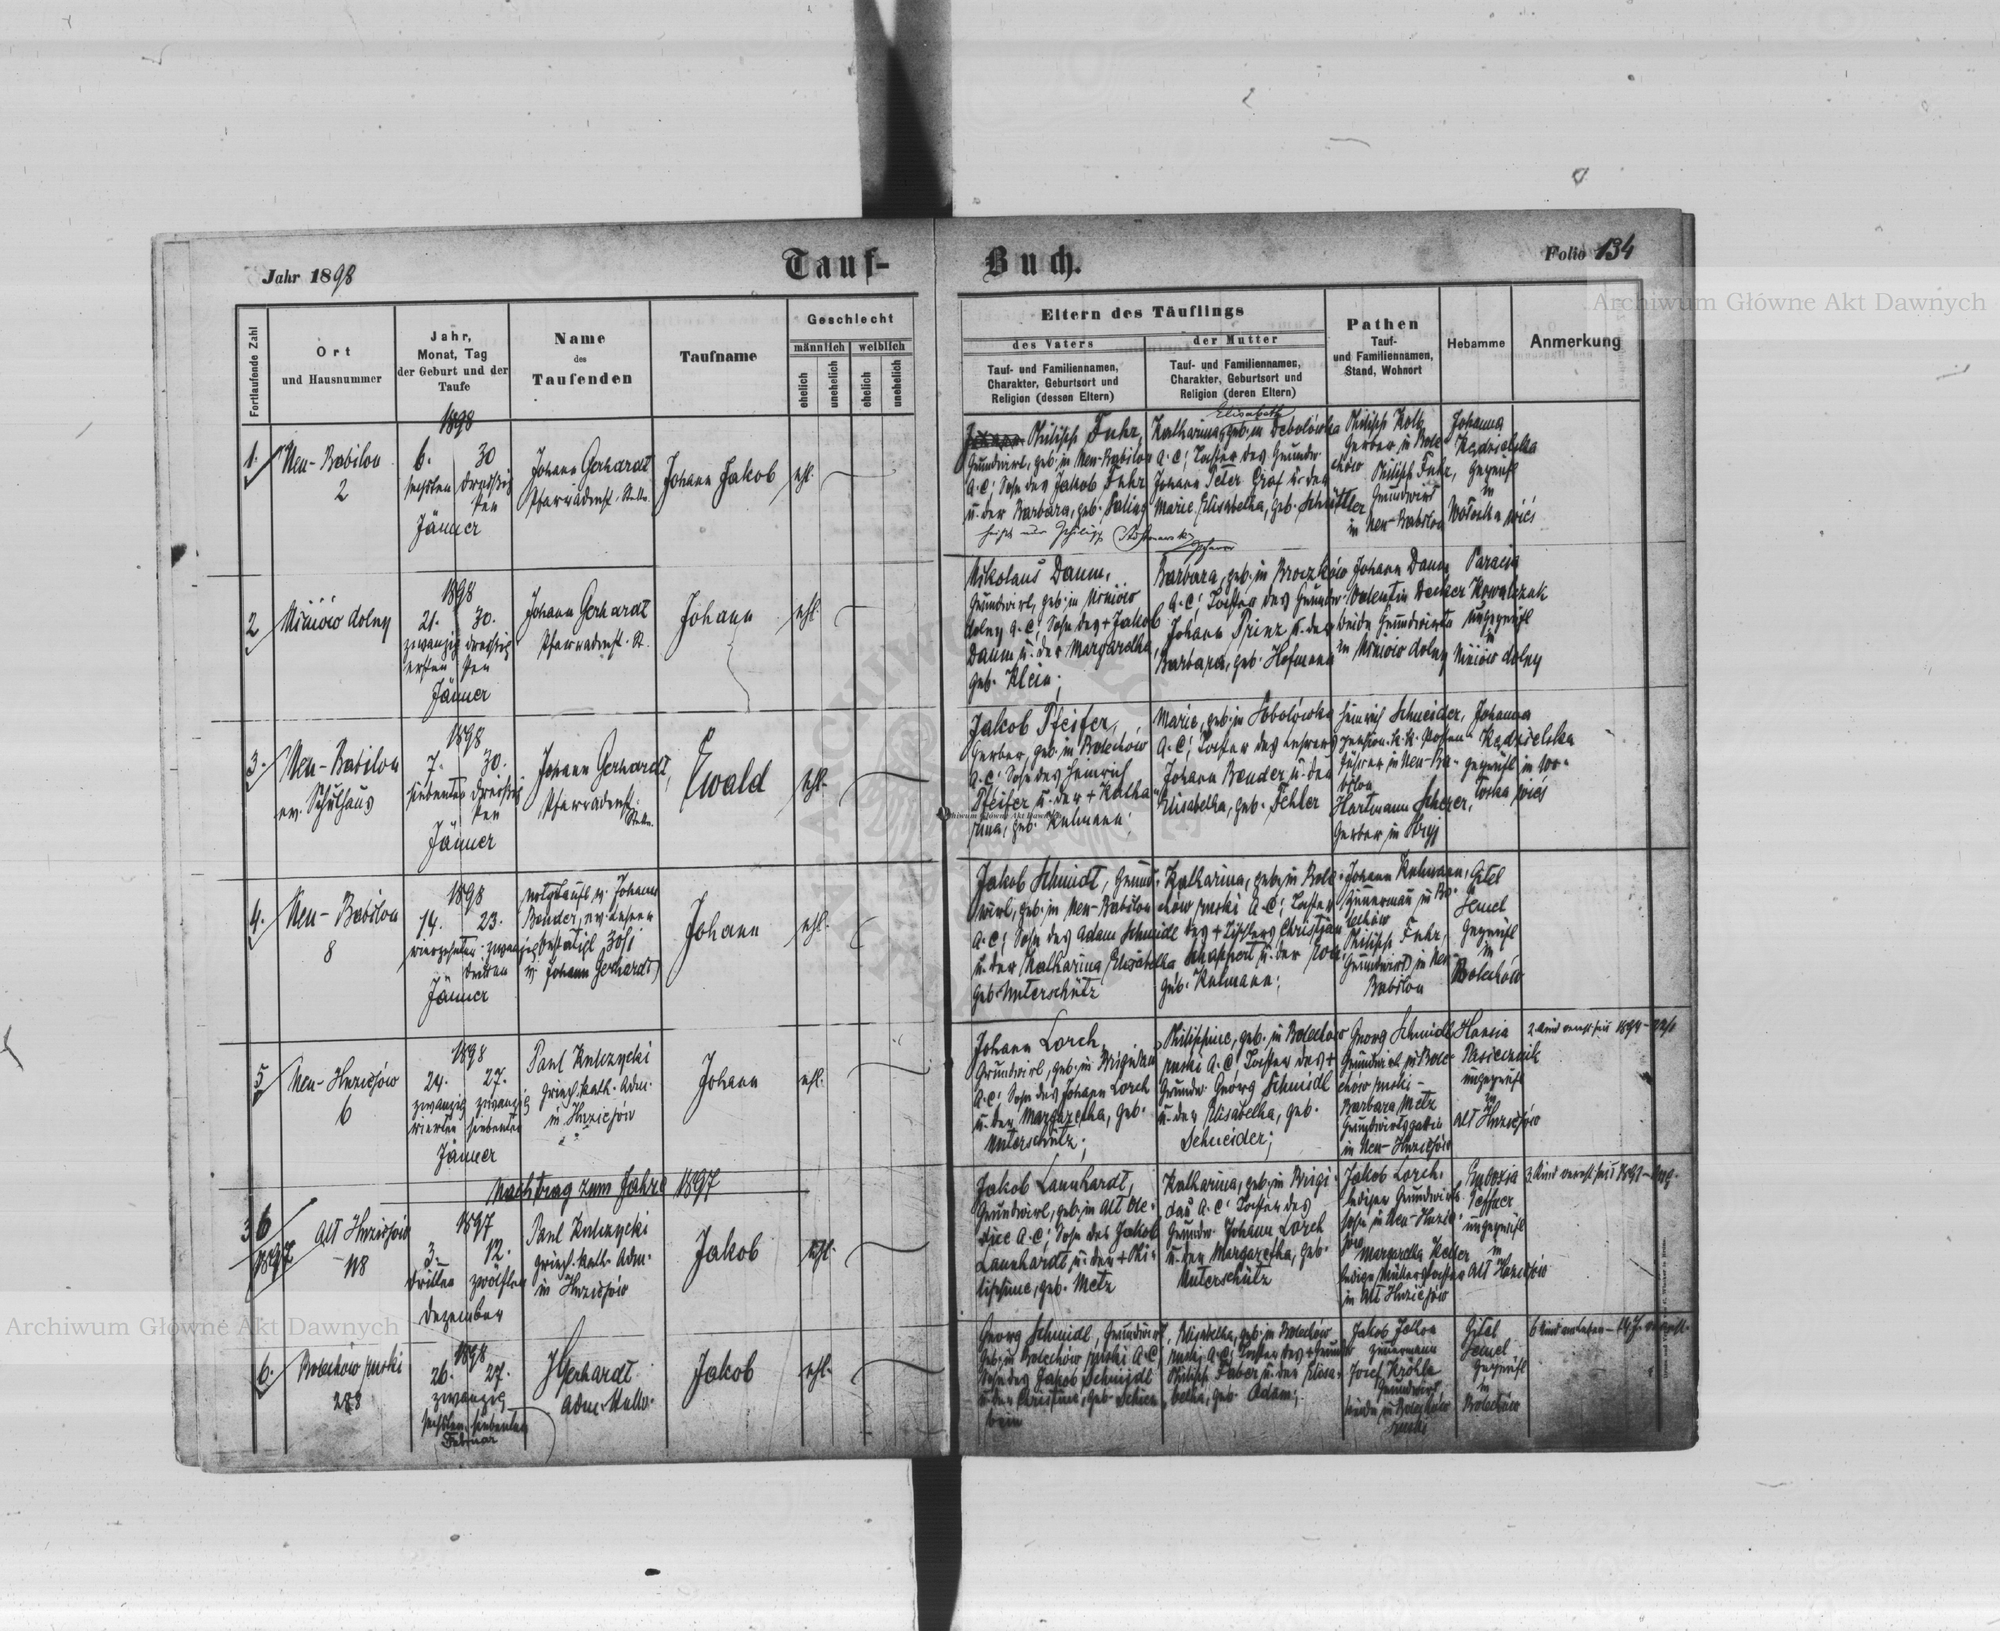 Jahr 1898
Tauf-
Buch.
Folio 134
Archiwum Główne Akt Dawnych
Fortlaufende Zahl
Ort
und Hausnummer
Jahr,
Monat, Tag
der Geburt und der
Taufe
Name
des
Taufenden
Taufname
Geschlecht
männlich
weiblich
ehelich
unehelich
ehelich
unehelich
Eltern des Täuflings
des Vaters
der Mutter
Tauf- und Familiennamen,
Charakter, Geburtsort und
Religion (dessen Eltern)
Tauf- und Familiennamen,
Charakter, Geburtsort und
Religion (deren Eltern)
Pathen
Tauf-
und Familiennamen,
Stand, Wohnort
Hebamme
Anmerkung
1.
Neu-Babilon
2
1898
6. 30
sechsten dreißig
sten
Jänner
Johann Gerhardt
Johann Jakob
ehl.
Philipp Fuhr,
Grundwirt, geb. in Neu-Babilon
A.C.; Sohn des Jakob Fuhr
u. der Barbara, geb.
Elisabeth
Katharina, geb. in Debolówka
A.C.; Tochter des Grundw.
Johann Peter Graf u. der
Marie Elisabetha, geb. Schüttler
Philipp Kolb
Gerber in Bole-
chów
Philipp Fuhr,
Grundwirt
in Neu-Babilon
Johanna
Kędzielska
geprüft
in
Wołoska wieś
2
Mizióio dolny
1898
21. 30.
zwanzig dreißig
ersten sten
Jänner
Johann Gerhardt
Johann
ehl.
Nikolaus Daum,
Grundwirt, geb. in Miniów
dolny A.C.; Sohn des + Jakob
Daum u. der Margaretha,
geb. Klein;
Barbara, geb. in Broczków
A.C.; Tochter des Grundw.
Johann Prinz u. der
Barbara, geb. Hofmann
Johann Daum
Valentin Decker
beide Grundwirte
in Miniów dolny
Paracia
Kowalczak
ungeprüft
in
Miniów dolny
3.
Neu-Babilon
ev. Schulhaus
1898
7. 30.
siebenten dreißig
sten
Jänner
Johann Gerhardt,
Ewald
ehl.
Jakob Pfeifer,
Gerber, geb. in Bolechów
A.C.; Sohn des Heinrich
Pfeifer u. der + Katha-
rina, geb. Kulmann;
Marie, geb. in Sobolówka
A.C.; Tochter des Lehrers
Johann Bender u. der
Elisabetha, geb. Fehler
Heinrich Schneider,
pension. k.k. Posten-
führer in Neu-Ba-
bilon
Hartmann Scherer,
Gerber in Stryj
Johanna
Kędzielska
geprüft in Wo-
łoska wieś
Archiwum Główne Akt Dawnych
4.
Neu-Babilon
8
1898
14. 23.
vierzehnten zwanzig
dritten
Jänner
notgetauft v. Johann
Bender, ev. Lehrer
bestätigt
v. Johann Gerhardt
Johann
ehl.
Jakob Schmidt, Grund-
wirt, geb. in Neu-Babilon
A.C.; Sohn des Adam Schmidt
u. der Katharina Elisabetha
geb. Unterschütz
Katharina, geb. in Bole-
chów ruski A.C.; Tochter
des + Tischlers Christian
Schappert u. der
geb. Kulmann;
Johann Kulmann,
Zimmermann in Bo-
lechów
Philipp Fuhr,
Grundwirt in Neu-
Babilon
Gitel
Semel
geprüft
in
Bolechów
5
Neu-Hnizdjów
6
1898
24. 27.
zwanzig zwanzig
vierten siebenten
Jänner
Paul Kulczycki
griech. kath. Adm.
in Hnizdjów
Johann
ehl.
Johann Lorch,
Grundwirt, geb. in Brigidau
A.C.; Sohn des Johann Lorch
u. der Margaretha, geb.
Unterschütz;
Philippine, geb. in Bolechów
ruski A.C.; Tochter des +
Grundw. Georg Schmidt
u. der Elisabetha, geb.
Schneider;
Georg Schmidt
Grundwirt in Bole-
chów ruski -
Barbara Metz
Grundwirtsgattin
in Neu-Hnizdjów
Hansia
Pasiecznik
ungeprüft
in
Alt Hnizdjów
Nachtrag zum Jahre 1897
36
1897
Alt Hnizdjów
118
1897
3. 12.
dritten zwölften
Dezember
Paul Kulczycki
griech. kath. Adm.
in Hnizdjów
Jakob
ehl.
Jakob Launhardt,
Grundwirt, geb. in Alt Ole-
A.C.; Sohn des Jakob
Launhardt u. der + Phi-
lippine, geb. Metz
Katharina, geb. in Brigi-
dau A.C.; Tochter des
Grundw. Johann Lorch
u. der Margaretha, geb.
Unterschütz
Jakob Lorch,
lediger Grundwirts-
sohn in Neu-Hnizd-
jów
Margaretha Keller
ledige Müllerstochter
in Alt Hnizdjów
ungeprüft
in
Alt Hnizdjów
6.
Bolechów ruski
288
1898
26. 27.
zwanzig
sechsten siebenten
Februar
JGerhardt
Adm.
Jakob
ehl.
Georg Schmidt, Grundwirt,
geb. in Bolechów ruski A.C.
Sohn des Jakob Schmidt
u. der Christina, geb.
Elisabetha, geb. in Bolechów
ruski A.C.; Tochter des + Grundw.
Philipp Faber u. der Elisa-
betha, geb. Adam;
Jakob
Zimmermann
Josef Kröhle
Grundwirt
beide in Bolechów
ruski
Gitel
Semel
geprüft
in
Bolechów
Archiwum Główne Akt Dawnych